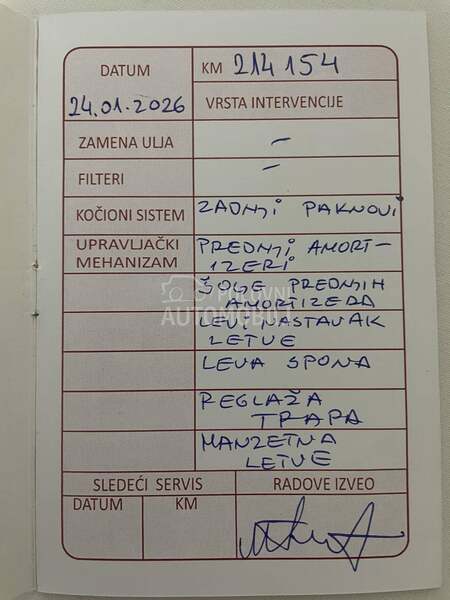 DATUM
KM 214 154
24.01.2026
VRSTA INTERVENCIJE
ZAMENA ULJA –
FILTERI –
KOČIONI SISTEM ZADNJI PAKNOVI
UPRAVLJAČKI MEHANIZAM PREDNJI AMORT-
IZERI
ŠOLJE PREDNJIH
AMORTIZERA
LEVI NASTAVAK
LETVE
LEVA SPONA
REGLAŽA
TRAPA
MANŽETNA
LETVE
POLOVNI
AUTOMOBILI
SLEDEĆI SERVIS
RADOVE IZVEO
DATUM
KM